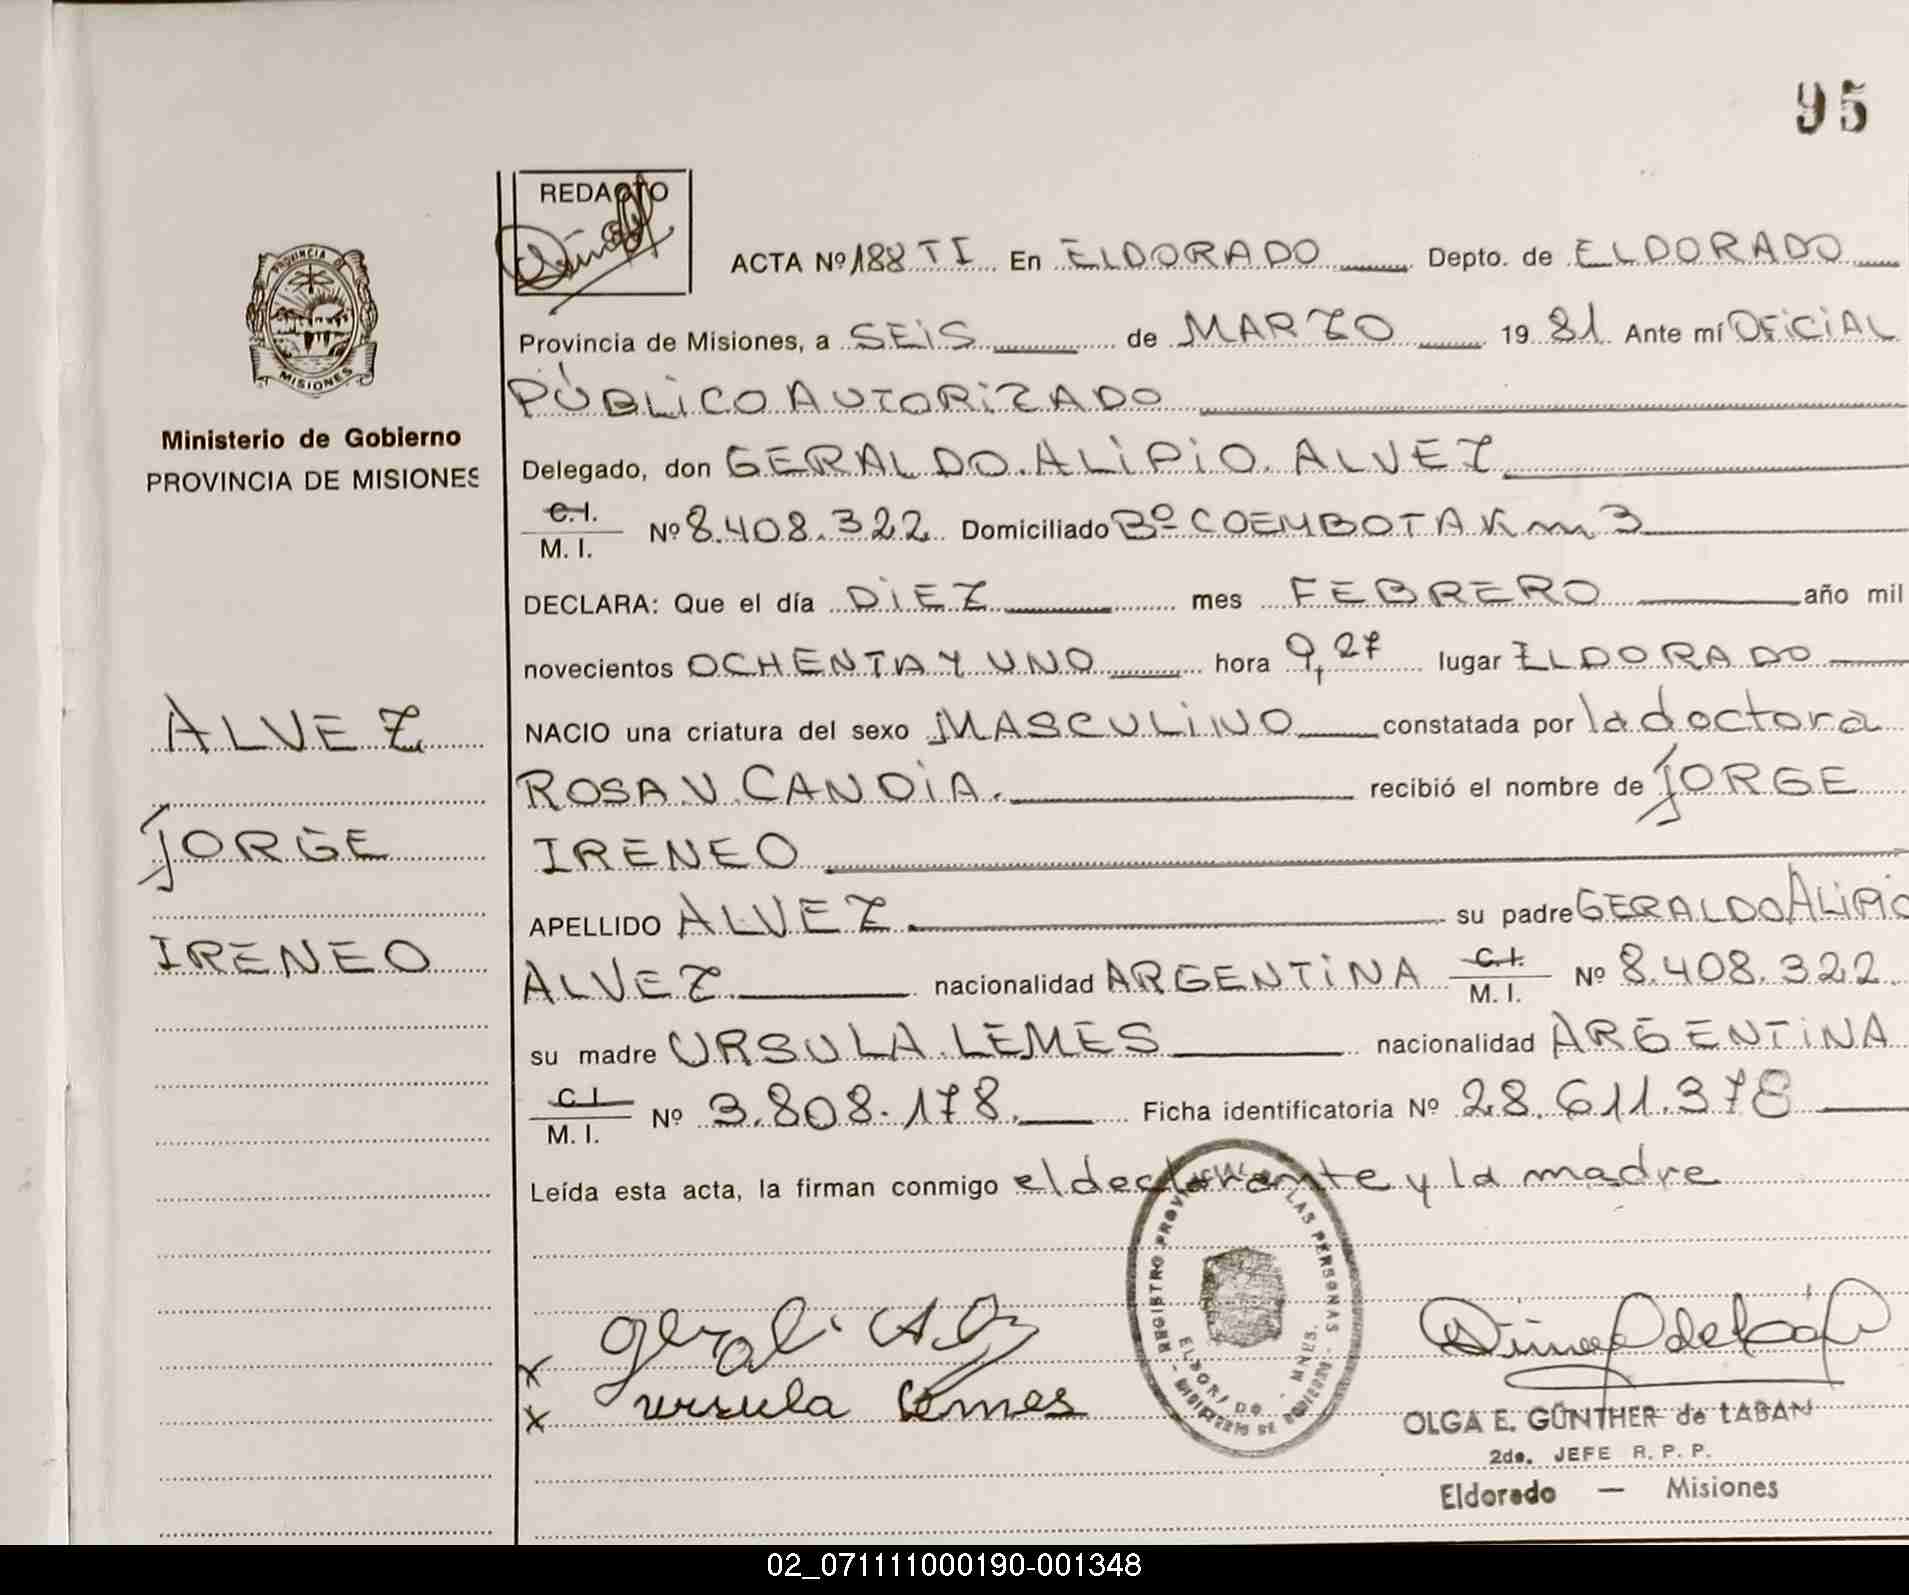 95
REDACTO
ACTA Nº 188 TI En ELDORADO Depto. de ELDORADO
Provincia de Misiones, a SEIS de MARZO 19 81 Ante mí OFICIAL
PÚBLICO AUTORIZADO
Delegado, don GERALDO ALIPIO ALVEZ
C.I.
M. I. Nº 8.408.322 Domiciliado Bº COEMBOTA Km 3
DECLARA: Que el día DIEZ mes FEBRERO año mil
novecientos OCHENTA Y UNO hora 9,27 lugar ELDORADO
NACIO una criatura del sexo MASCULINO constatada por la doctora
ROSA V. CANDIA. recibió el nombre de JORGE
IRENEO
APELLIDO ALVEZ su padre GERALDO ALIPIO
ALVEZ nacionalidad ARGENTINA C.I.
M. I. Nº 8.408.322
su madre URSULA LEMES nacionalidad ARGENTINA
C.I.
M. I. Nº 3.808.178. Ficha identificatoria Nº 28.611.378
Leída esta acta, la firman conmigo el declarante y la madre
PROVINCIA DE
MISIONES
Ministerio de Gobierno
PROVINCIA DE MISIONES
ALVEZ
JORGE
IRENEO
x
x ursula Lemes
REGISTRO PROVINCIAL DE LAS PERSONAS
ELDORADO - MNES.
MINISTERIO DE GOBIERNO
OLGA E. GÜNTHER de LABAN
2do. JEFE R. P. P.
Eldorado — Misiones
02_071111000190-001348